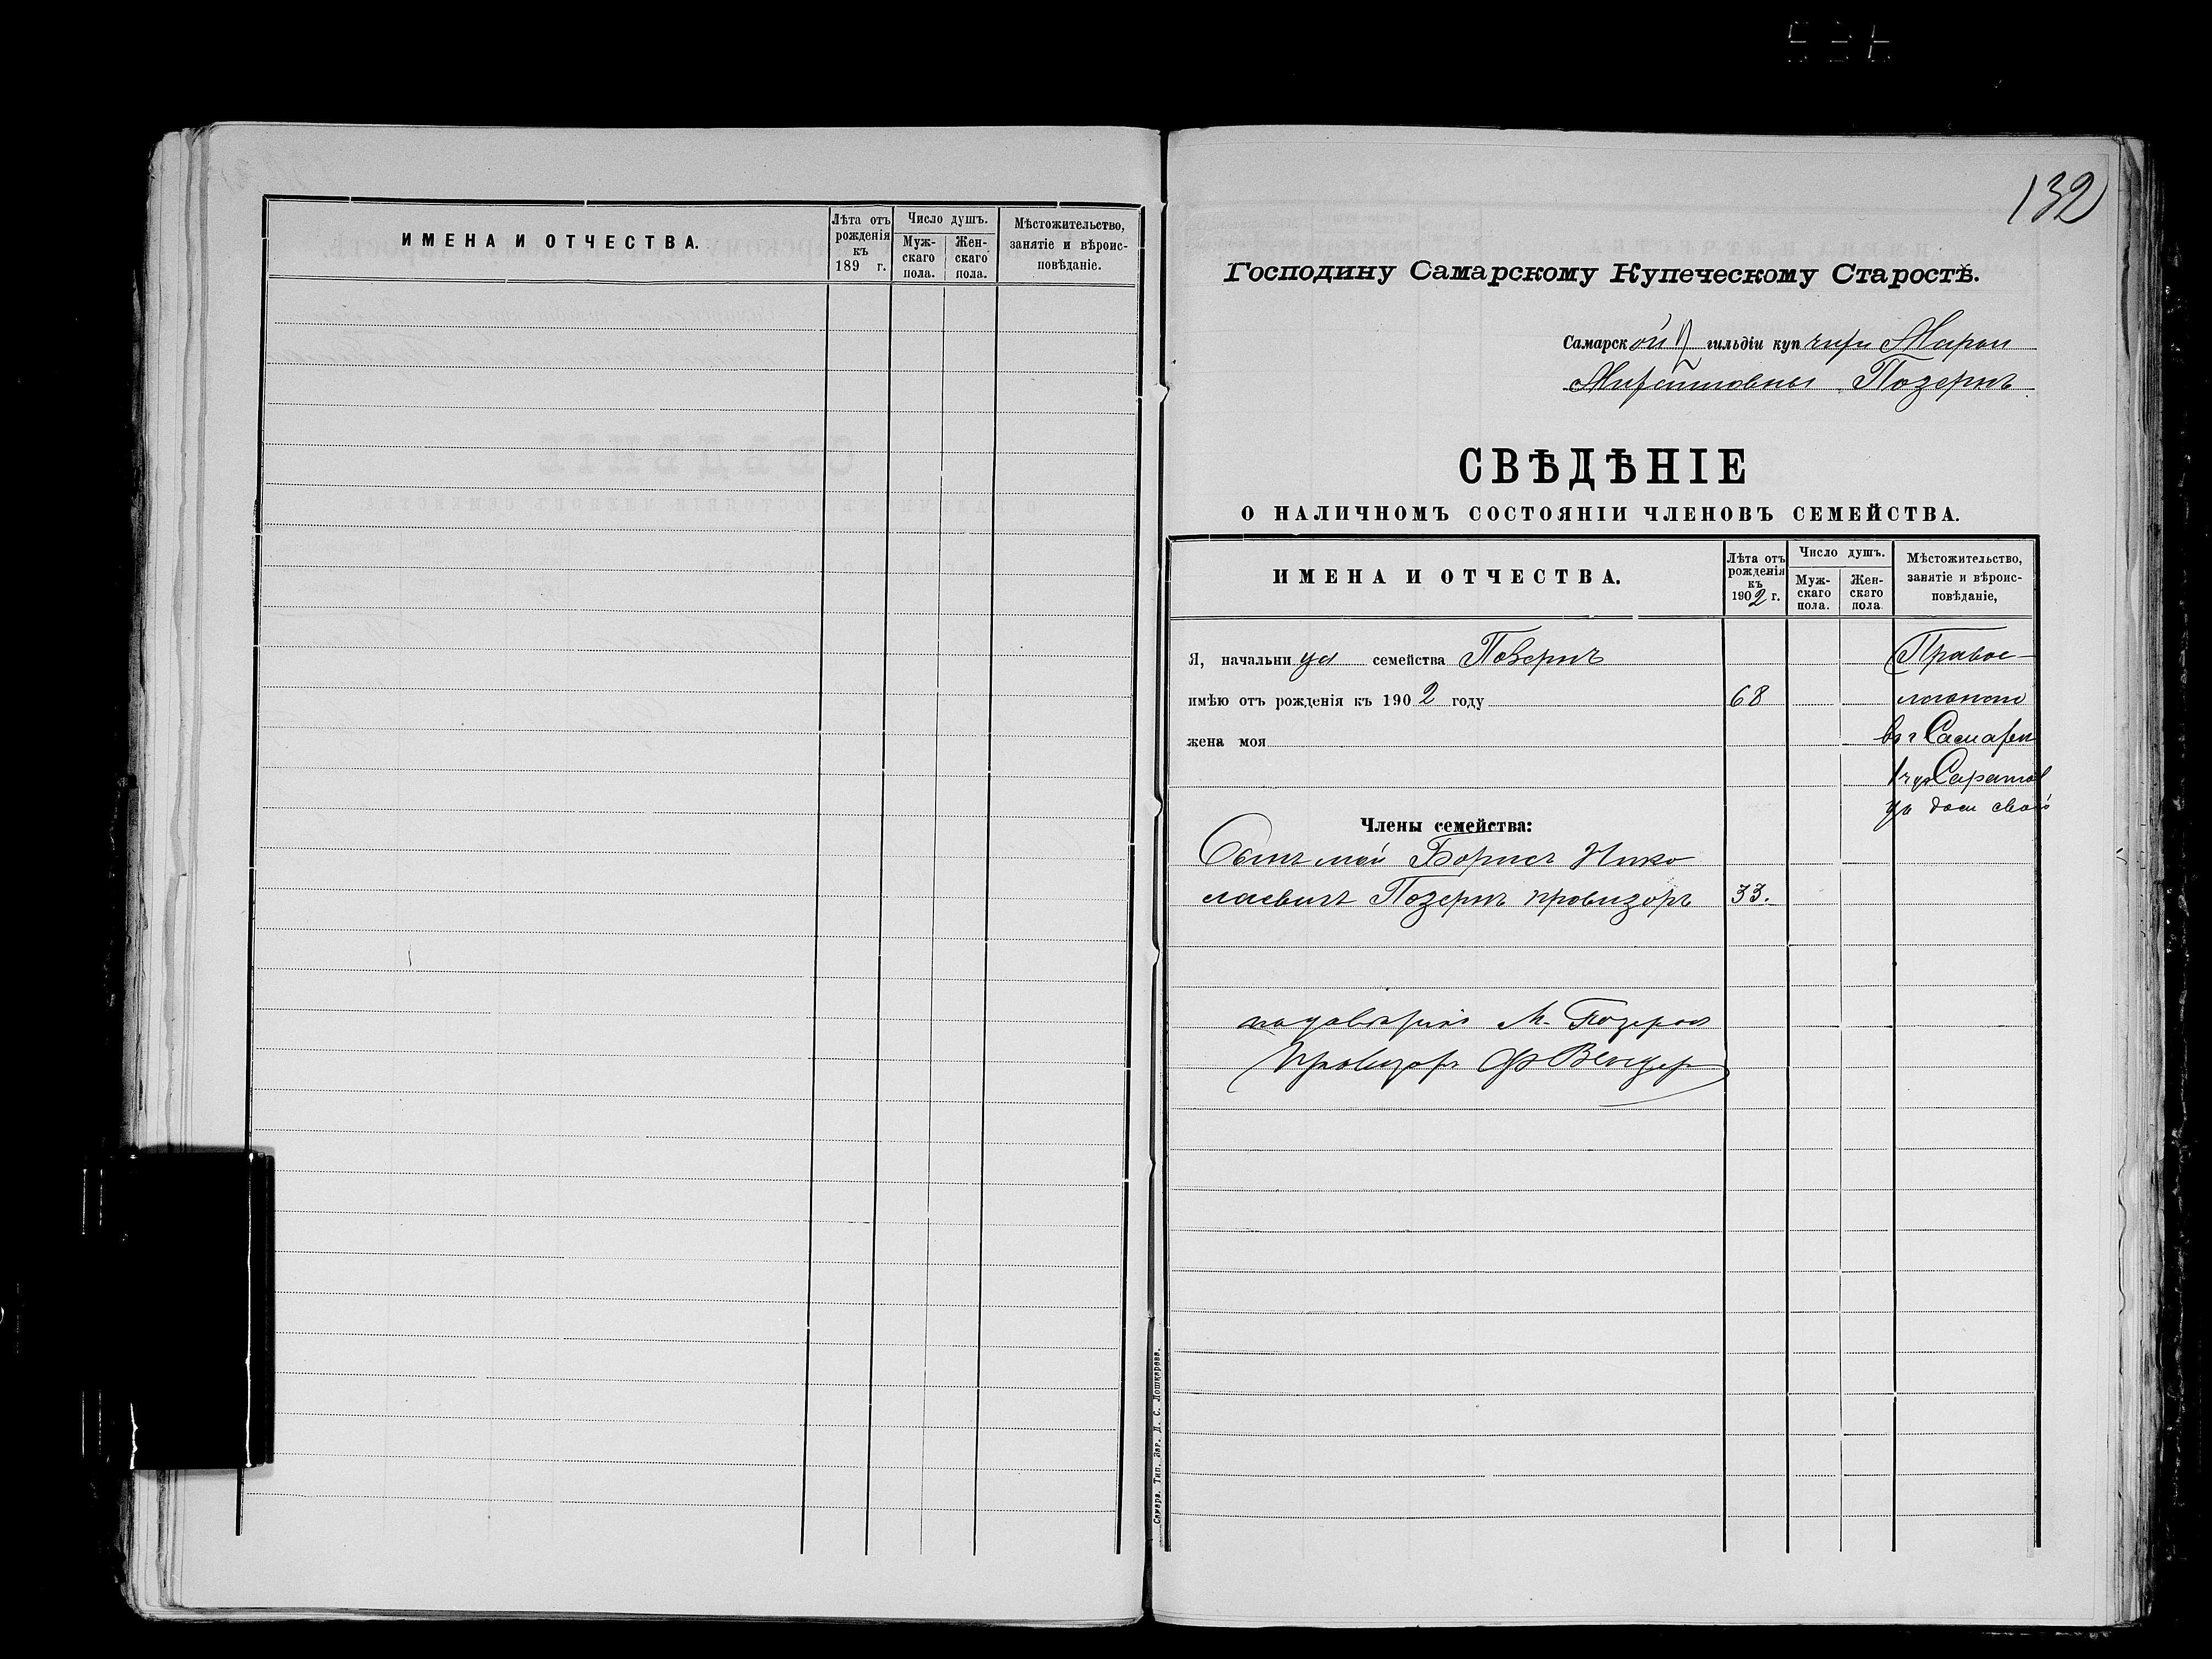 ИМЕНА И ОТЧЕСТВА.
Лѣта отъ рожденія къ 189 г.
Число душъ.
Мужскаго пола.
Женскаго пола.
Мѣстожительство, занятіе и вѣроисповѣданіе.
132
Господину Самарскому Купеческому Старостѣ.
Самарской 2 гильдіи купчихи Маріи
Позернъ
СВѢДѢНІЕ
О НАЛИЧНОМЪ СОСТОЯНІИ ЧЛЕНОВЪ СЕМЕЙСТВА.
ИМЕНА И ОТЧЕСТВА.
Лѣта отъ рожденія къ 1902 г.
Число душъ.
Мужскаго пола.
Женскаго пола
Мѣстожительство, занятіе и вѣроисповѣданіе,
Я, начальница семейства Позернъ
Правос-
имѣю отъ рожденія къ 1902 году 68
жена моя
въ г Самарѣ
домъ свой
Члены семейства:
Сынъ мой Борисъ Нико
лаевичъ Позернъ провизоръ 33.
По довѣрію М. Позернъ
Провизоръ
Самара. Тип. Наг. Д. С. Лошкарева.